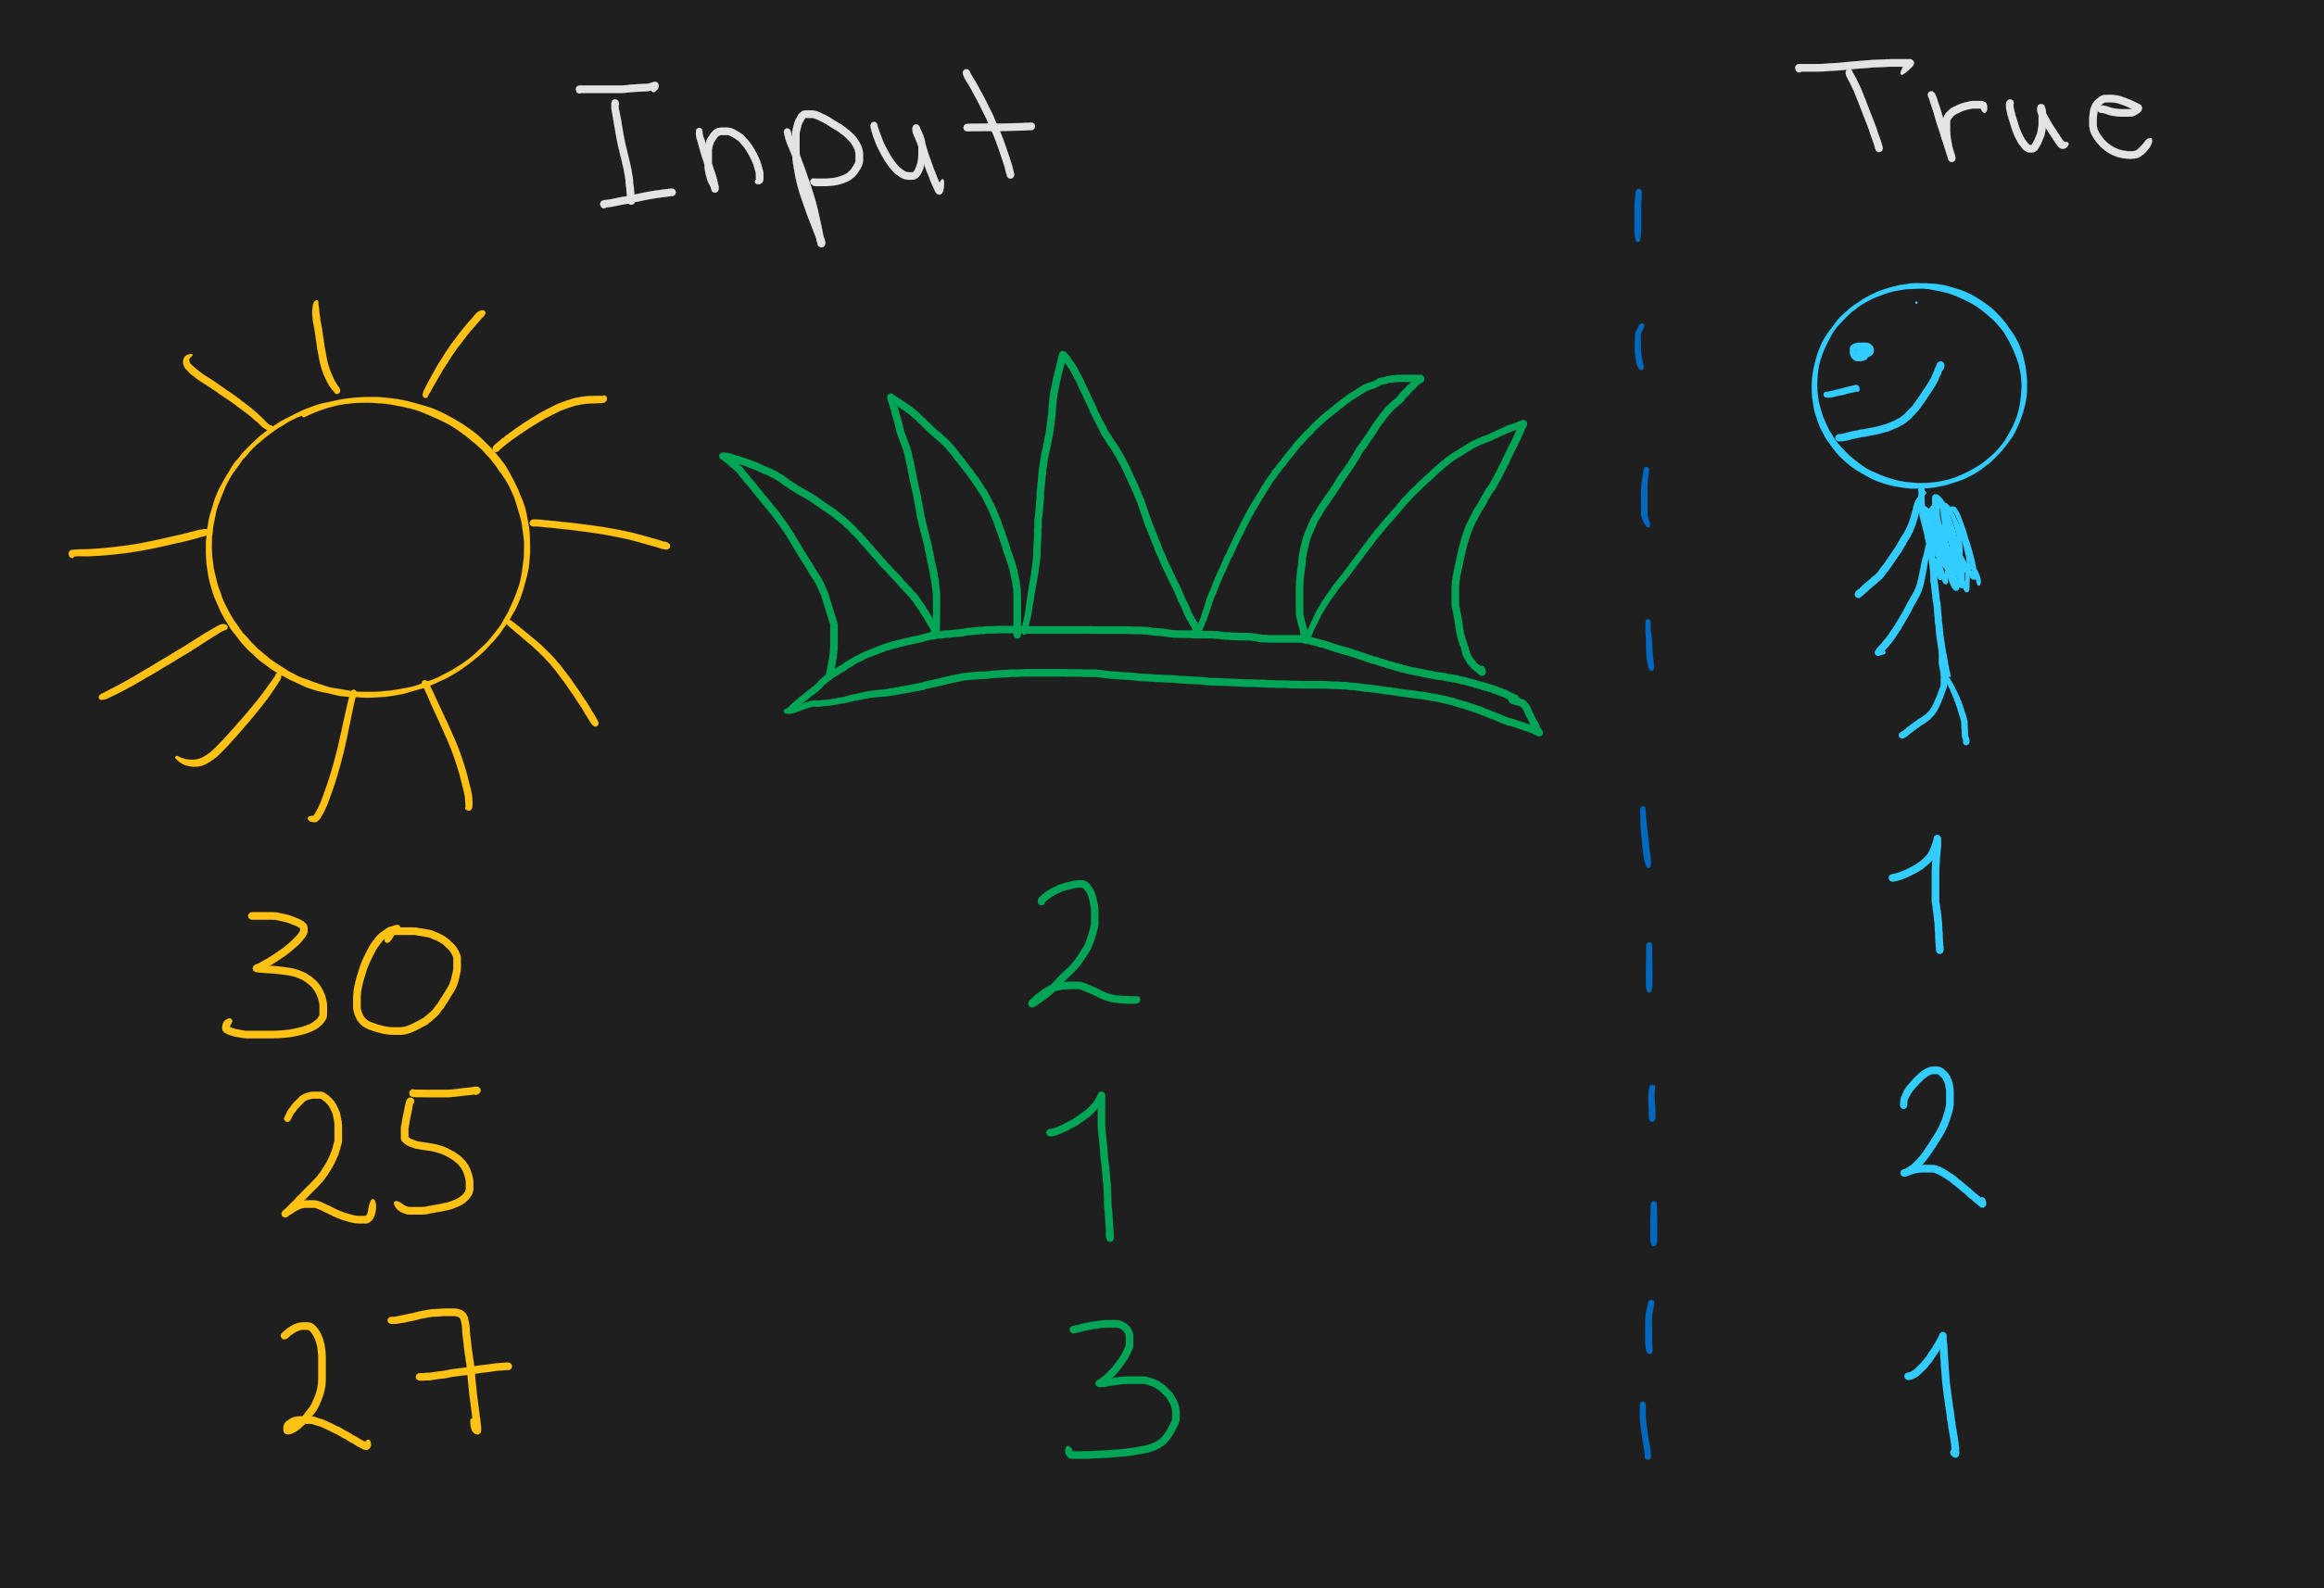 Input True
30 2 1
25 1 2
27 3 1